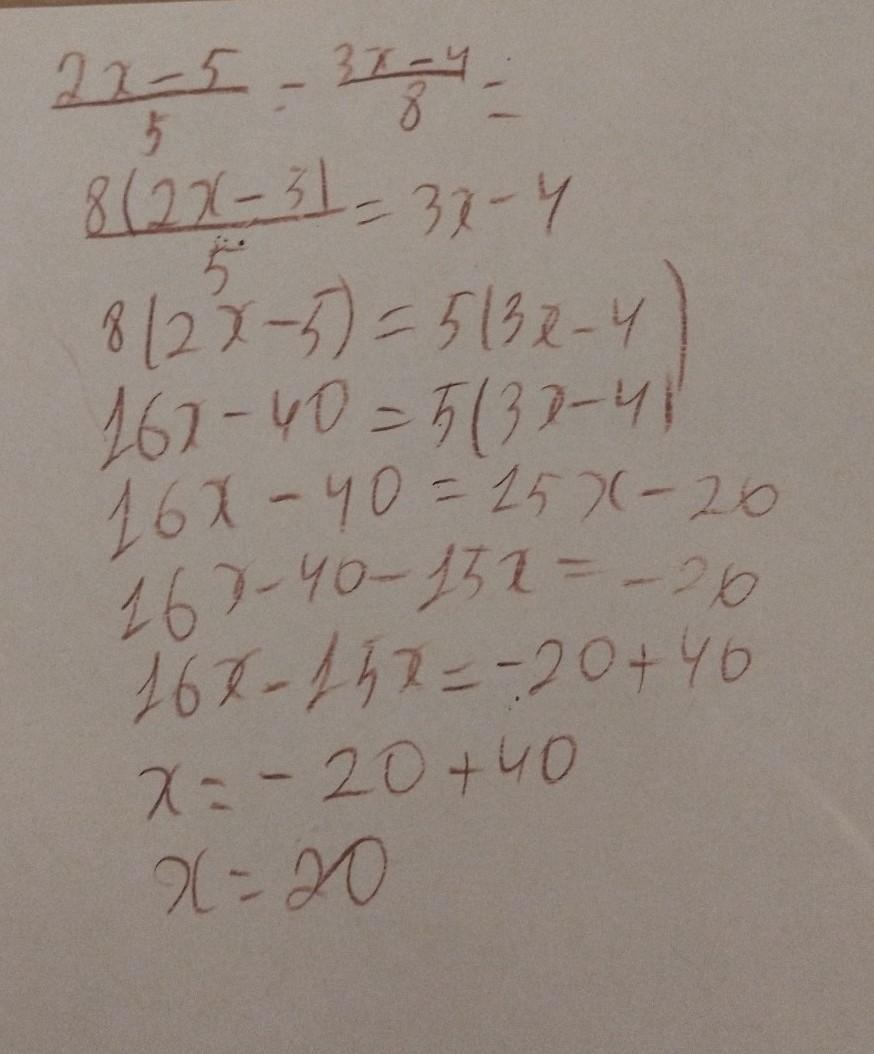 (2x-5)/5 = (3x-4)/8 =
8(2x-5)/5 = 3x-4
8(2x-5) = 5(3x-4)
16x-40 = 5(3x-4)
16x-40 = 15x-20
16x-40-15x = -20
16x-15x = -20+40
x = -20+40
x = 20